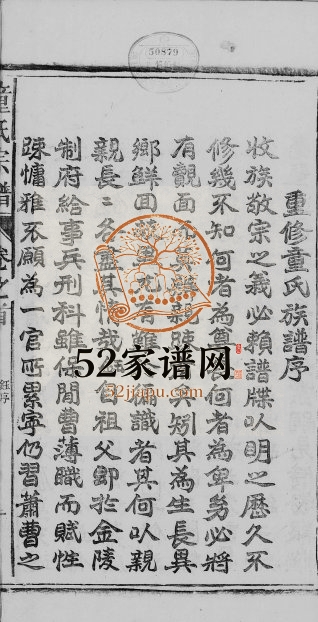 重修童氏族譜序
收族敬宗之義必賴譜牒以明之歷久不
修幾不知何者為尊長何者為卑㓜必將
有覿面不 其為生長異
鄉鮮回 有 識者其何以親
親長長各盡其情哉 祖父鄉於金陵
制府給事兵刑科雖任閒曹薄職而賦性
疎慵雅不願為一官所累寧仍習蕭曹之
童氏宗譜 卷之首
序
50879
52家谱网
52jiapu.com